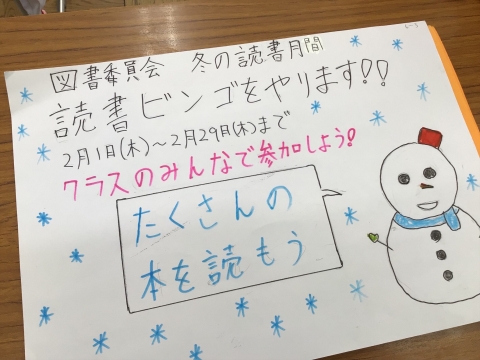 図書委員会 冬の読書月間
読書ビンゴをやります!!
2月1日(木)～2月29日(木)まで
クラスのみんなで参加しよう!
たくさんの
本を読もう